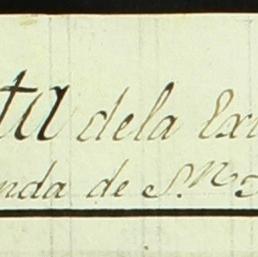 ta dela Ex
nda de S.n